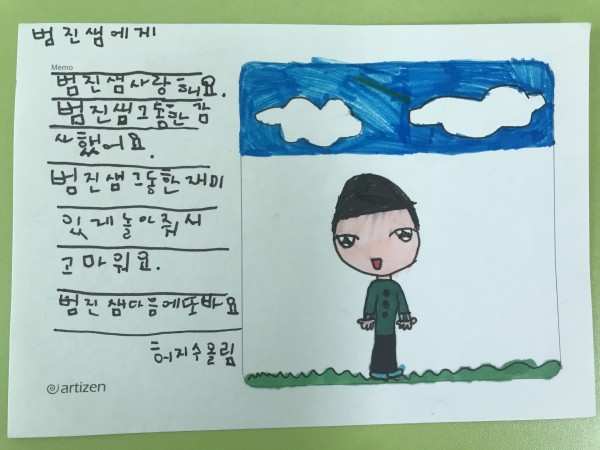 범진쌤에게
Memo
범진쌤사랑해요.
범진쌤그동한감
사했어요.
범진쌤그동한재미
있게놀아줘서
고마워요.
범진쌤다음에또바요
허지수올림
artizen